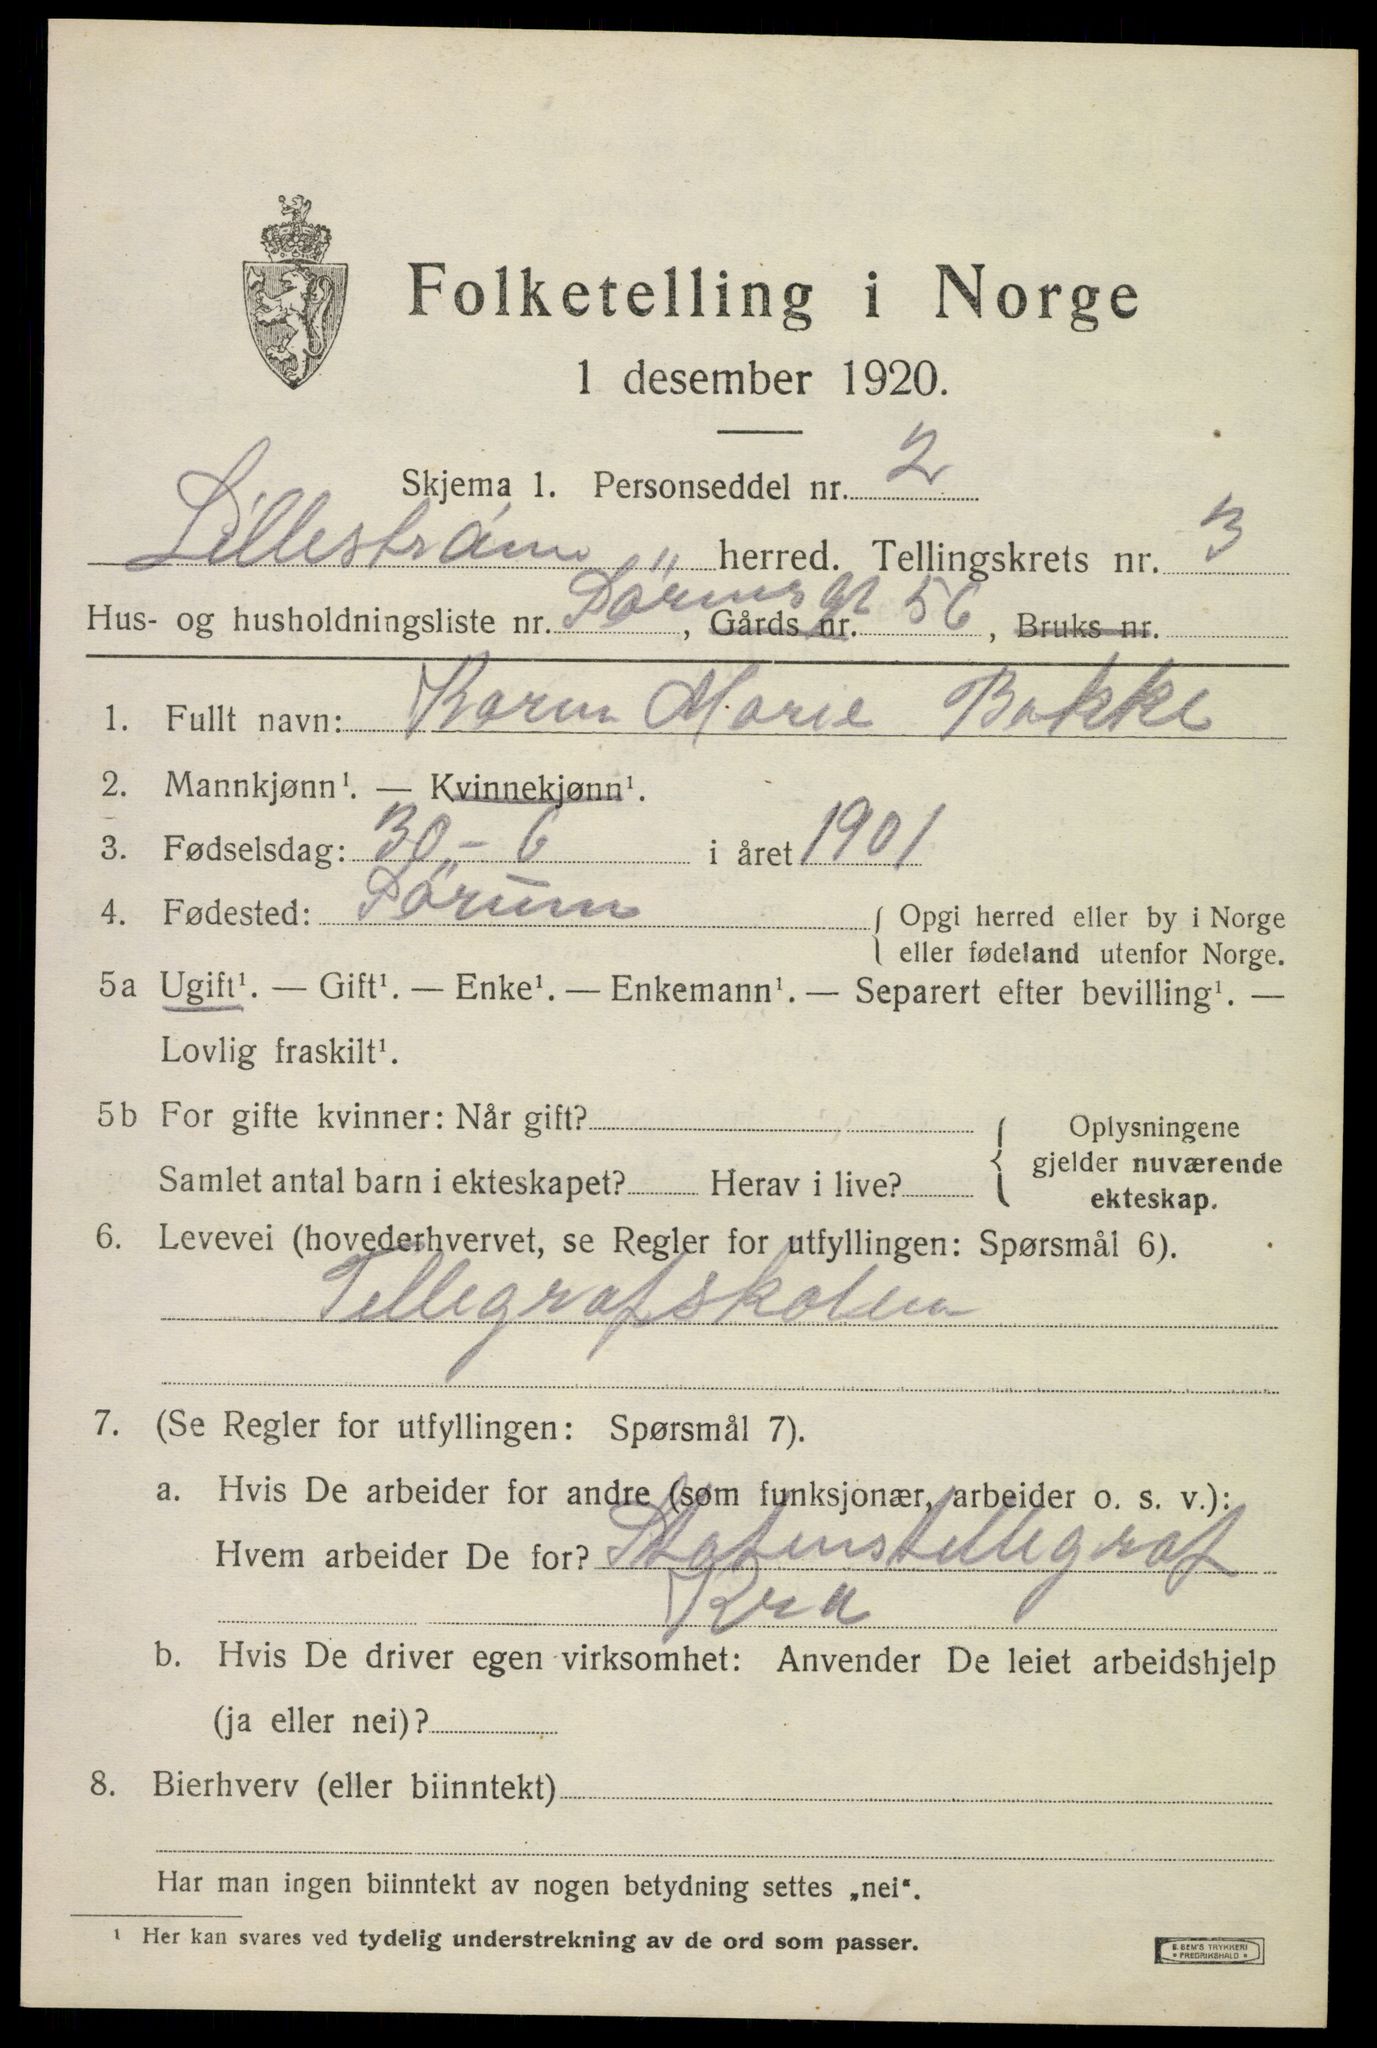 Folketelling i Norge
1 desember 1920.
Skjema 1. Personseddel nr. 2
Lillestrøm herred. Tellingskrets nr. 3
Hus- og husholdningsliste nr. Sörumsgt 56, Gårds nr., Bruks nr.
1. Fullt navn: Karen Marie Bakke
2. Mannkjønn¹. — Kvinnekjønn¹.
3. Fødselsdag: 30.- 6 i året 1901
4. Fødested: Sörum
{ Opgi herred eller by i Norge
eller fødeland utenfor Norge.
5a Ugift¹. — Gift¹. — Enke¹. — Enkemann¹. — Separert efter bevilling¹. —
Lovlig fraskilt¹.
5b For gifte kvinner: Når gift?
Samlet antal barn i ekteskapet? Herav i live?
{ Oplysningene
gjelder nuværende
ekteskap.
6. Levevei (hovederhvervet, se Regler for utfyllingen: Spørsmål 6).
Tellegrafskolen
7. (Se Regler for utfyllingen: Spørsmål 7).
a. Hvis De arbeider for andre (som funksjonær, arbeider o. s. v.):
Hvem arbeider De for? Statenstellegraf
Kra
b. Hvis De driver egen virksomhet: Anvender De leiet arbeidshjelp
(ja eller nei)?
8. Bierhverv (eller biinntekt)
Har man ingen biinntekt av nogen betydning settes „nei“.
¹ Her kan svares ved tydelig understrekning av de ord som passer.
E. SEM'S TRYKKERI
* FREDRIKSHALD *